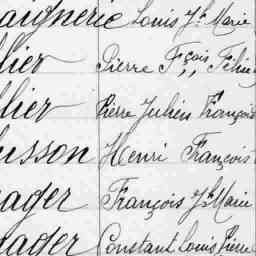 aignerie Louis Jh Marie
llier Pierre Fçois Félix
llier Pierre Julien François
usson Henri François
ager François J Marie
ager Constant Louis Pierre